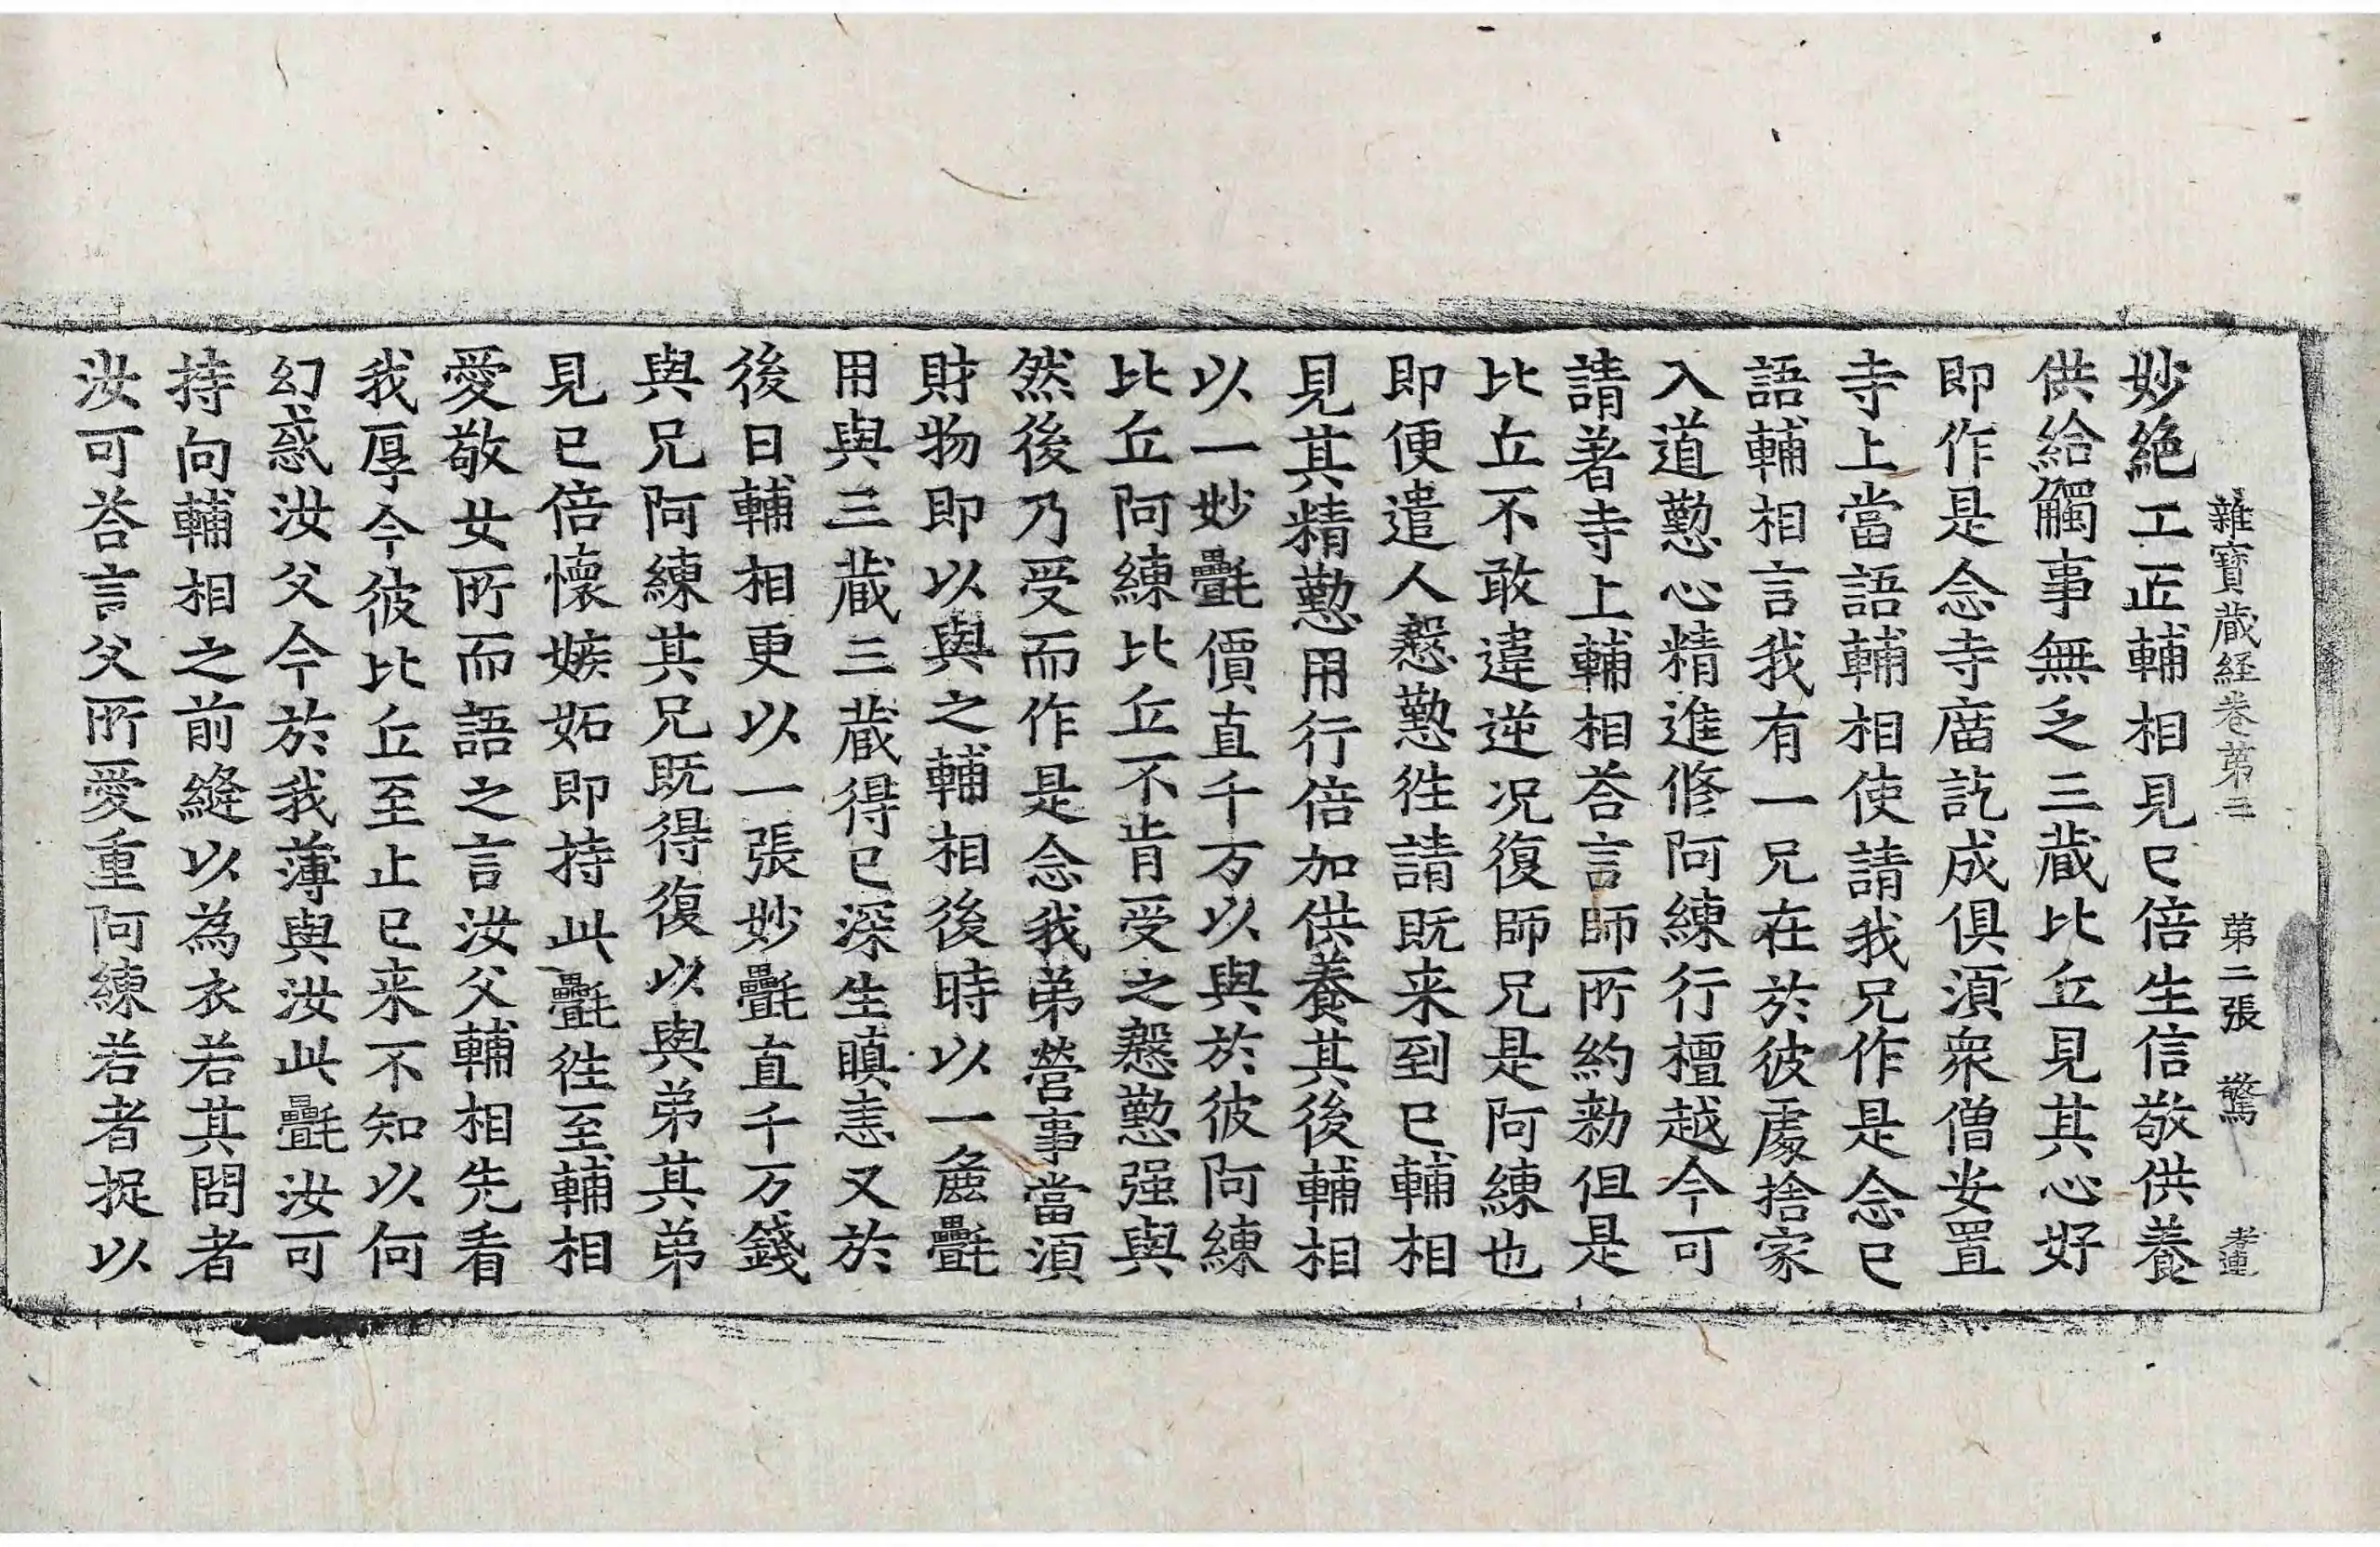 雜寶蔵経卷第三 第二張 驚 孝連
妙絶工正輔相見已倍生信敬供養
供給觸事無乏三蔵比丘見其心好
即作是念寺庿訖成俱湏衆僧安置
寺上當語輔相使請我兄作是念已
語輔相言我有一兄在於彼處捨家
入道懃心精進修阿練行檀越今可
請著寺上輔相荅言師所約勑但是
比丘不敢違逆况復師兄是阿練也
即便遣人慇懃徃請既来到已輔相
見其精懃用行倍加供養其後輔相
以一妙㲲價直千万以與於彼阿練
比丘阿練比丘不肯受之慇懃强與
然後乃受而作是念我弟營事當湏
財物即以與之輔相後時以一麁㲲
用與三蔵三蔵得已深生瞋恚又於
後日輔相更以一張妙㲲直千万錢
與兄阿練其兄既得復以與弟其弟
見已倍懷嫉妬即持此㲲徃至輔相
愛敬女所而語之言汝父輔相先看
我厚今彼比丘至止已来不知以何
幻惑汝父今於我薄與汝此㲲汝可
持向輔相之前縫以為衣若其問者
汝可荅言父所愛重阿練若者捉以